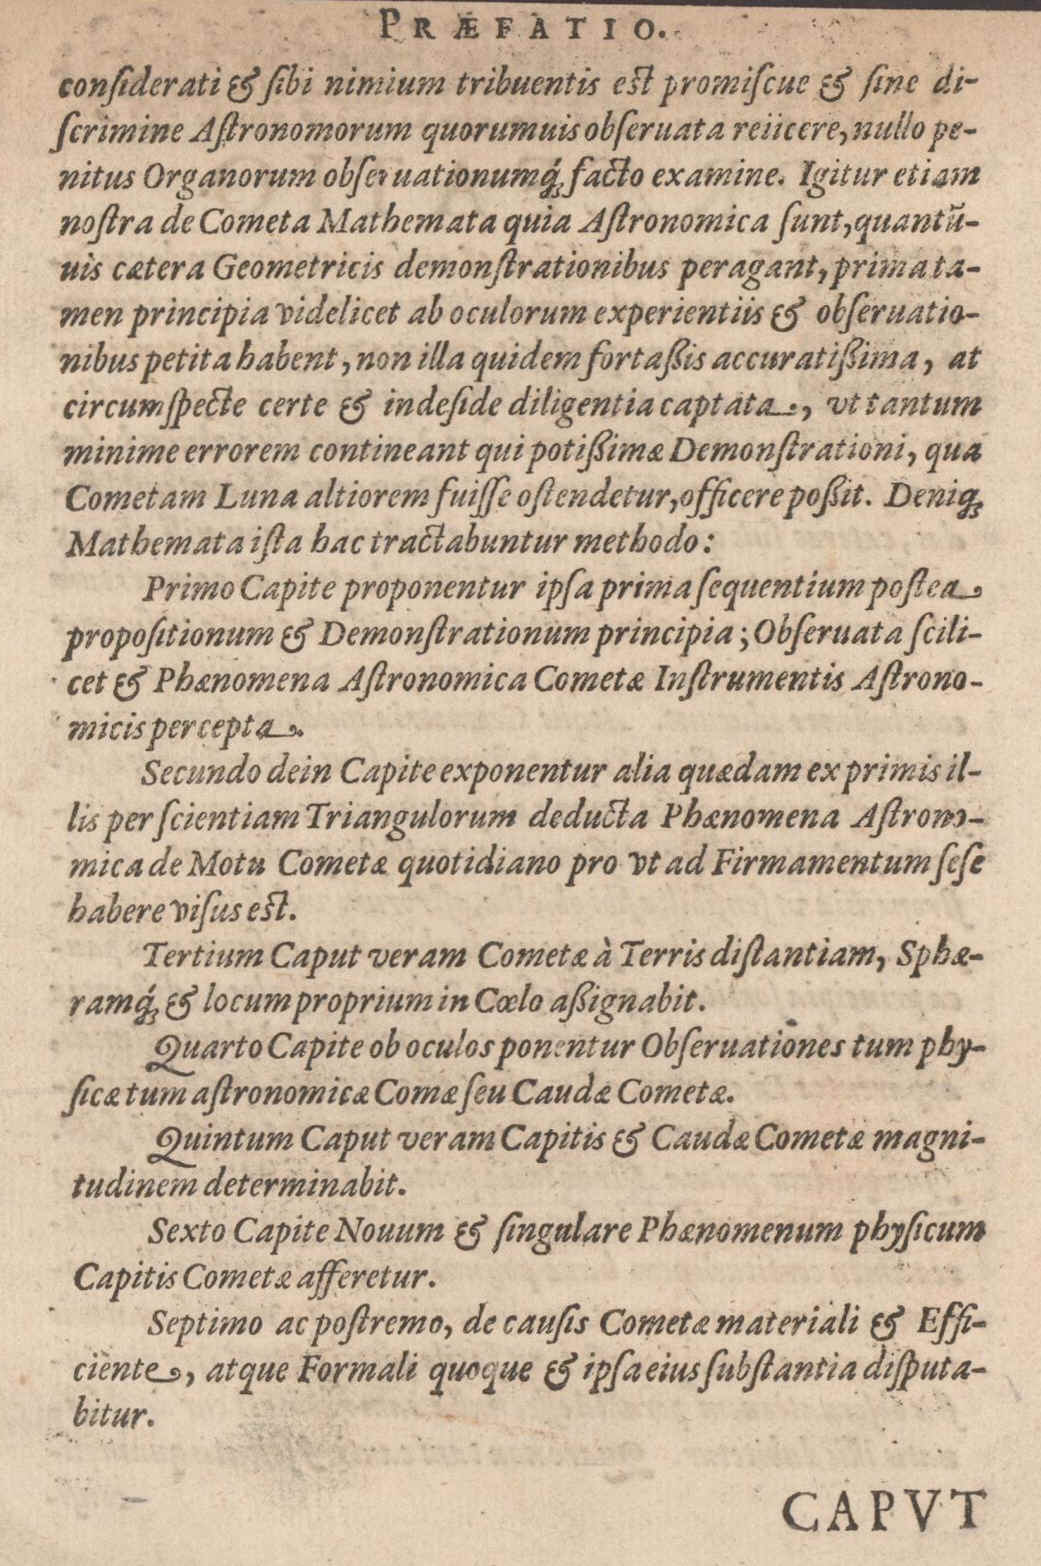 PRÆFATIO.
conſiderati & ſibi nimium tribuentis eſt promiſcue & ſine di-
ſcrimine Aſtronomorum quorumuis obſeruata reiicere, nullo pe-
nitus Organorum obſeruationumq́ꝫ facto examine. Igitur etiam
noſtra de Cometa Mathemata quia Aſtronomica ſunt, quantũ-
uis cætera Geometricis demonſtrationibus peragant, prima ta-
men principia videlicet ab oculorum experientiis & obſeruatio-
nibus petita habent, non illa quidem fortaßis accuratißima, at
circumſpecte certe & indeſide diligentia captata, vt tantum
minime errorem contineant qui potißimæ Demonſtrationi, qua
Cometam Luna altiorem fuiſſe oſtendetur, officere poßit. Deniqꝫ
Mathemata iſta hac tractabuntur methodo:
Primo Capite proponentur ipſa prima ſequentium poſtea
propoſitionum & Demonſtrationum principia; Obſeruata ſcili-
cet & Phænomena Aſtronomica Cometæ Inſtrumentis Aſtrono-
micis percepta.
Secundo dein Capite exponentur alia quædam ex primis il-
lis per ſcientiam Triangulorum deducta Phænomena Aſtrono-
mica de Motu Cometæ quotidiano pro vt ad Firmamentum ſeſe
habere viſus eſt.
Tertium Caput veram Cometæ à Terris diſtantiam, Sphæ-
ramq́ꝫ & locum proprium in Cœlo aßignabit.
Quarto Capite ob oculos ponentur Obſeruationes tum phy-
ſicæ tum aſtronomicæ Comæ ſeu Caudæ Cometæ.
Quintum Caput veram Capitis & Caudæ Cometæ magni-
tudinem determinabit.
Sexto Capite Nouum & ſingulare Phænomenum phyſicum
Capitis Cometæ afferetur.
Septimo ac poſtremo, de cauſis Cometæ materiali & Effi-
ciente, atque Formali quoque & ipſa eius ſubſtantia diſputa-
bitur.
CAPVT